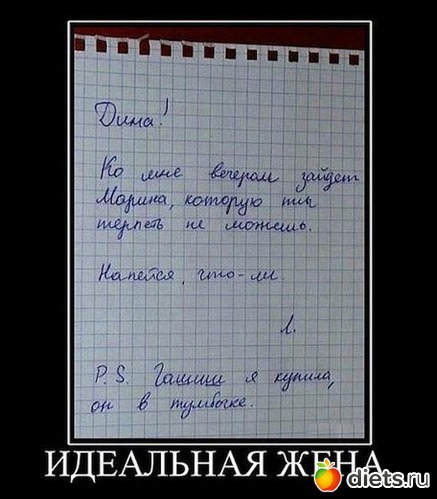 Дима!
Ко мне вечером зайдет
Марина, которую ты
терпеть не можешь.
Напейся, что-ли.
Л.
P.S. Гашиш я купила,
он в тумбочке.
ИДЕАЛЬНАЯ ЖЕНА
diets.ru